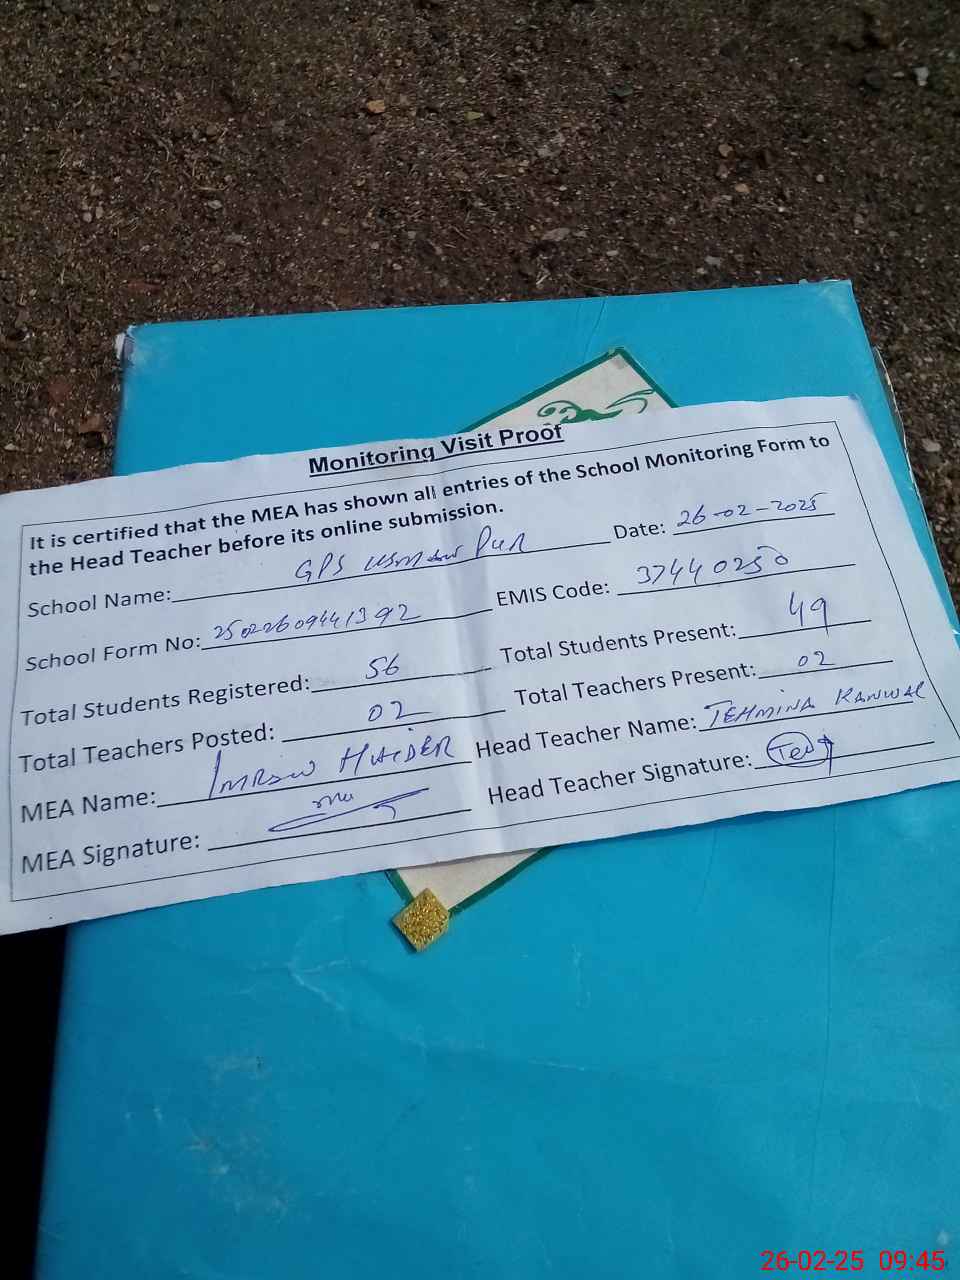 Monitoring Visit Proof
It is certified that the MEA has shown all entries of the School Monitoring Form to
the Head Teacher before its online submission.
School Name: GPS Pur Date: 26-02-2025
School Form No: 25022609441392 EMIS Code: 37440250
Total Students Registered: 56 Total Students Present: 49
Total Teachers Posted: 02 Total Teachers Present: 02
MEA Name: IMRAN HAIDER Head Teacher Name: TEHMINA KANWAL
MEA Signature: Head Teacher Signature:
26-02-25 09:45